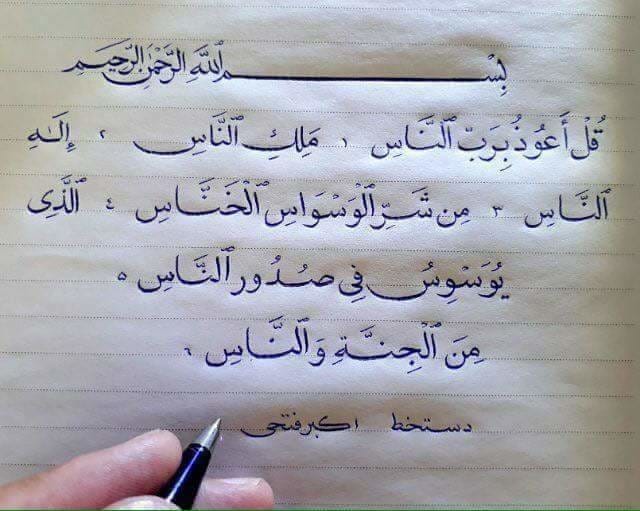 بِسْمِ ٱللَّهِ ٱلرَّحْمَٰنِ ٱلرَّحِيمِ
قُلْ أَعُوذُ بِرَبِّ ٱلنَّاسِ ۱ مَلِكِ ٱلنَّاسِ ۲ إِلَٰهِ
ٱلنَّاسِ ۳ مِن شَرِّ ٱلْوَسْوَاسِ ٱلْخَنَّاسِ ٤ ٱلَّذِى
يُوَسْوِسُ فِى صُدُورِ ٱلنَّاسِ ۵
مِنَ ٱلْجِنَّةِ وَٱلنَّاسِ ٦
دستخط اکبر فتحی